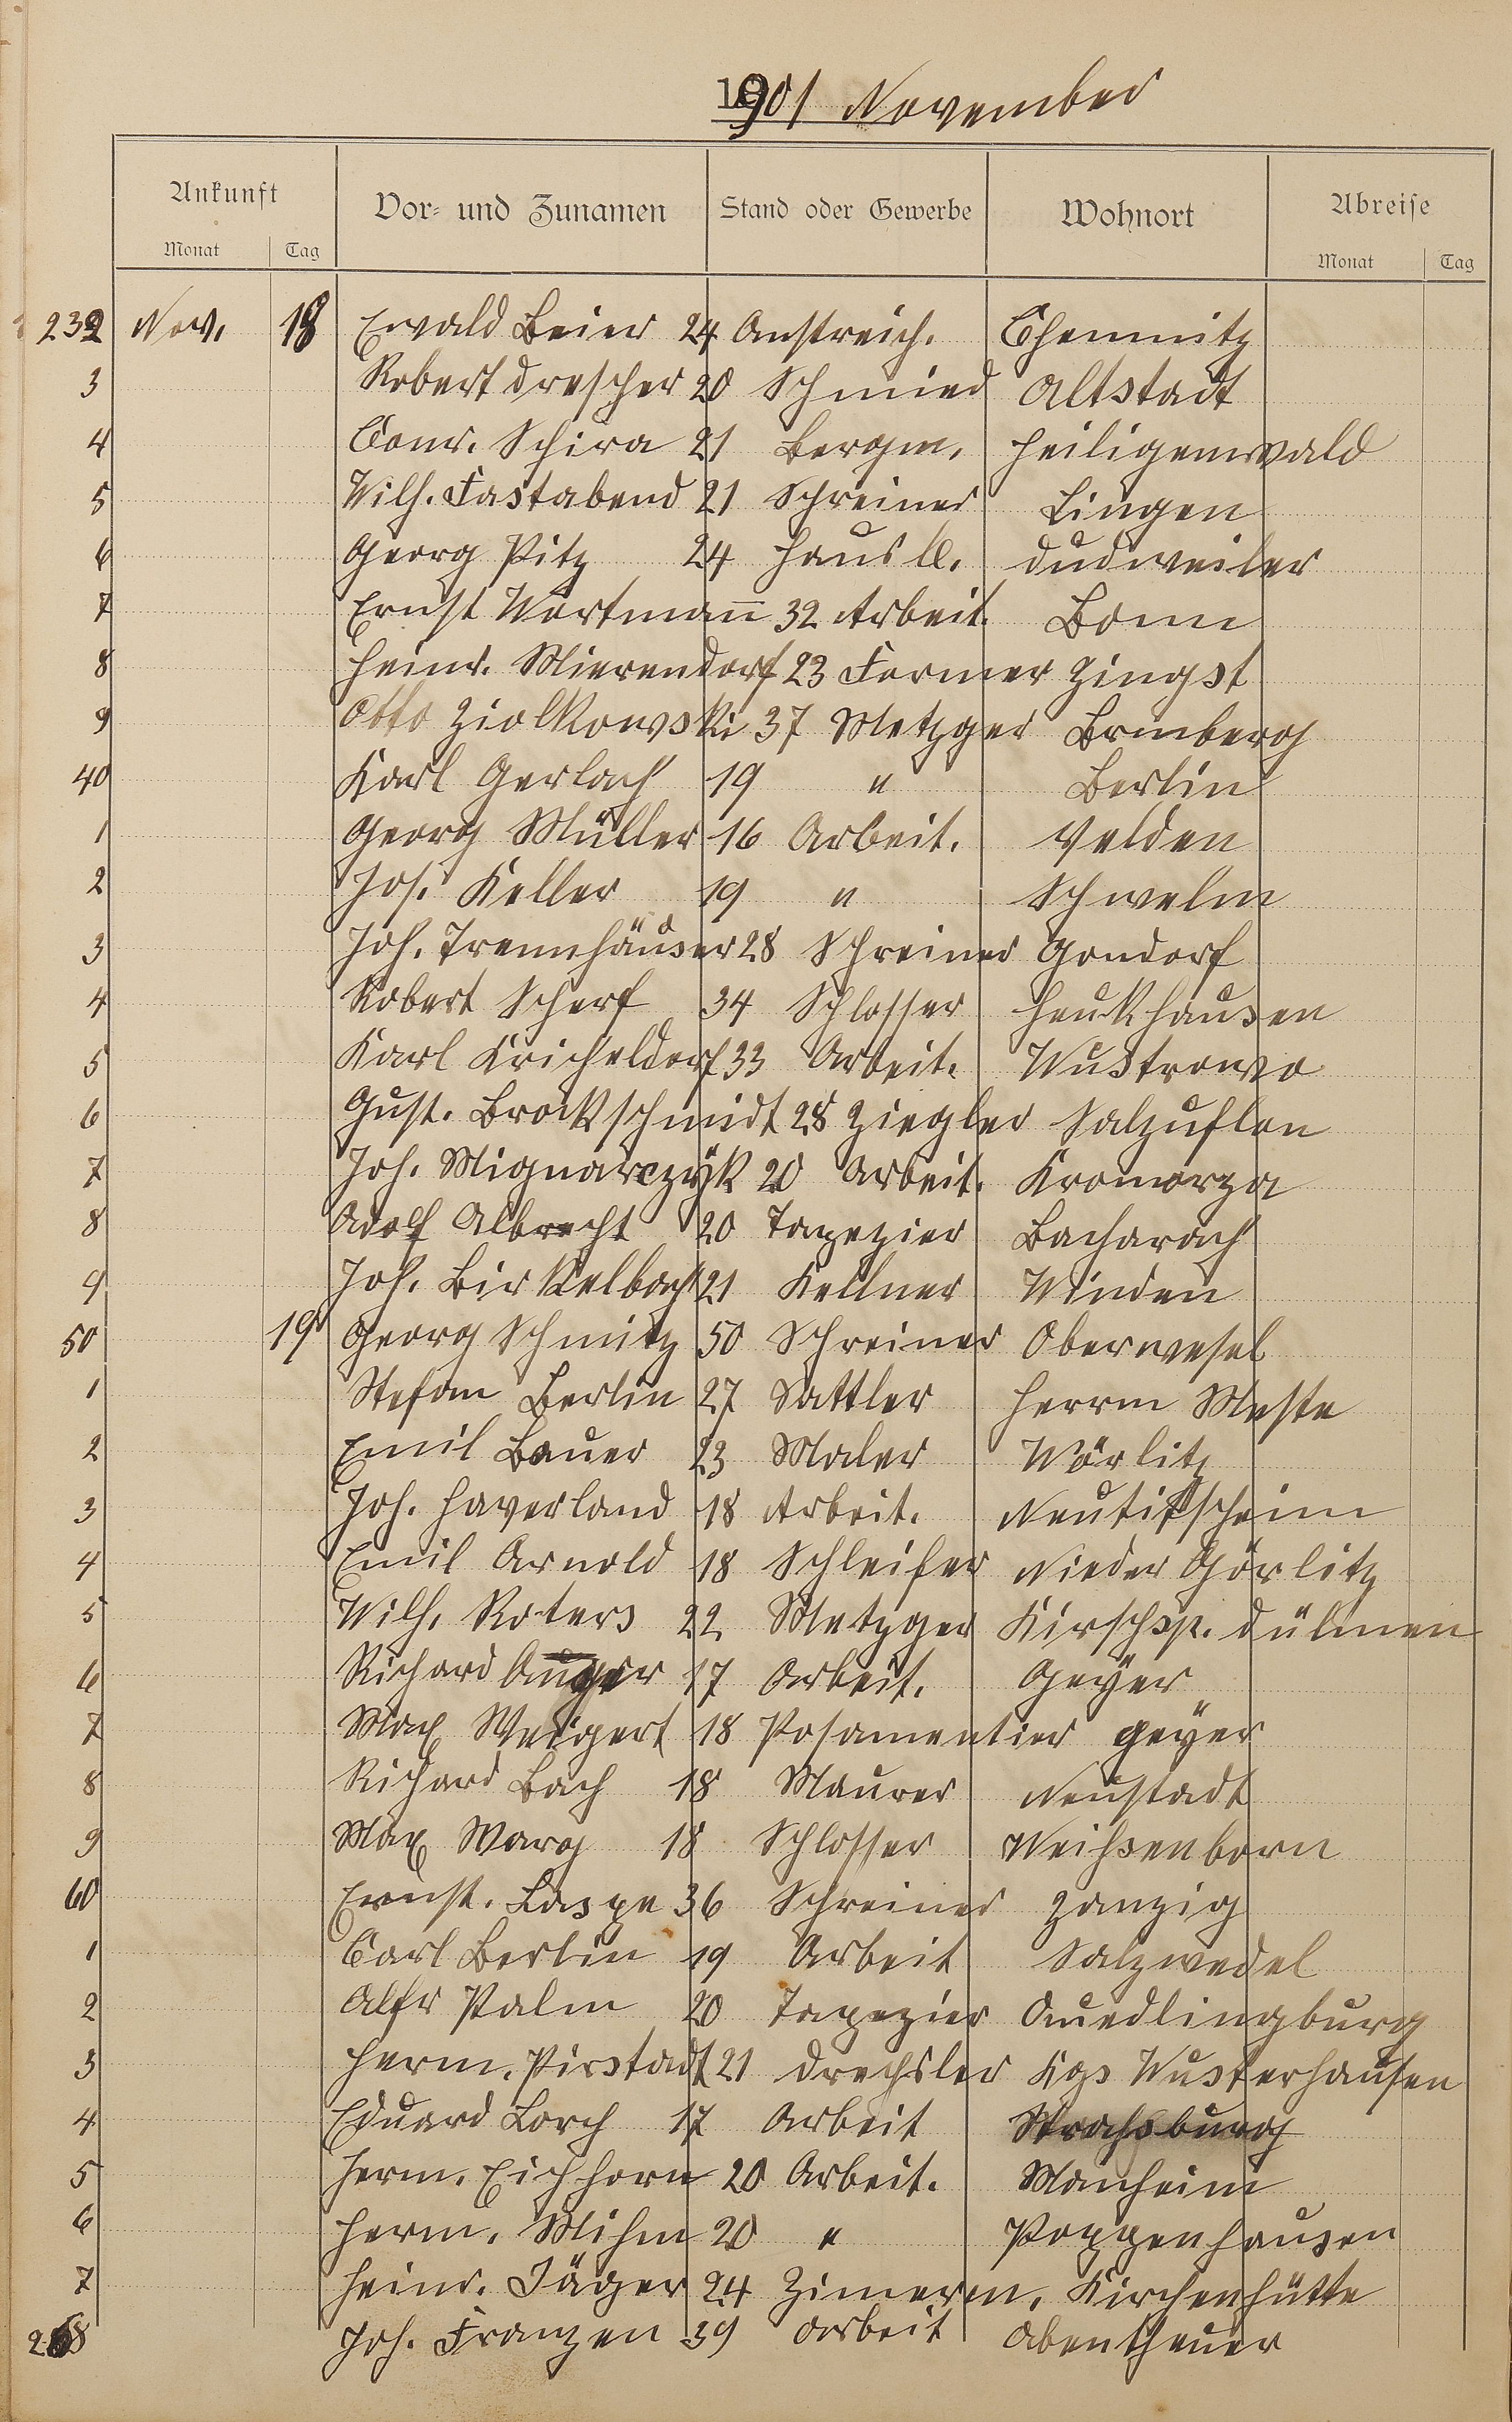 1901 November
Ankunft Vor- und Zunamen Stand oder Gewerbe Wohnort Abreise
Monat Tag Monat Tag
232 Nov. 18 Ewald Beier 24 Anstreich. Chemnitz
3 Robert Drescher 20 Schmied Altstadt
4 Conr. Schira 21 Bergm. Heiligenwald
5 Wilh. Fastabend 21 Schreiner Lingen
6 Georg Pitz 24 Dudweiler
7 Ernst Wortman̅n 32 Arbeit. Bonn
8 Heinr. Mierendorf 23 Former Zingst
9 Otto Ziolkowski 37 Metzger Bromberg
40 Karl Gerlach 19 " Berlin
1 Georg Müller 16 Arbeit. Velden
2 Jos. Keller 19 " Schwelm
3 Joh. Tremhäuser 28 Schreiner Gondorf
4 Robert Scherf 34 Schlosser Heukhausen
5 Karl Kricheldorf 33 Arbeit. Wustrowo
6 Gust. Brockschmidt 28 Ziegler Salzuflen
7 Joh. Mignarczÿk 20 Arbeit.
8 Adolf Albrecht 20 Tapezier Bacharach
9 Joh. Birkelbach 21 Kellner Winden
50 19 Georg Schmitz 50 Schreiner Oberwesel
1 Stefan Berlin 27 Sattler
2 Emil Bauer 23 Maler Wörlitz
3 Joh. Haverland 18 Arbeit.
4 Emil Arnold 18 Schleifer Nieder Görlitz
5 Wilh. Roters 22 Metzger Kirschsp. Dülmen
6 Richard 17 Arbeit. Geÿer
7 Max Weigert 18 Posamentier Geÿer
8 Richard Bach 18 Maurer Neustadt
9 Max Warg 18 Schlosser Weihsenborn
60 Ernst. Laspe 36 Schreiner Zanzig
1 Carl Berlin 19 Arbeit Salzwedel
2 Alfr Palm 20 Tapezier Quedlingburg
3 Herm. Pirstadt 21 Drechsler Kgs Wusterhausen
4 Eduard Lorch 17 Arbeit Strahsburg
5 Herm. Eichhorn 20 Arbeit. Manheim
6 Herm. Mihm 20 " Poppenhausen
7 Heinr. Jäger 24 Zimerm. Kirchenhütte
268 Joh. Franzen 39 Arbeit Abentheuer